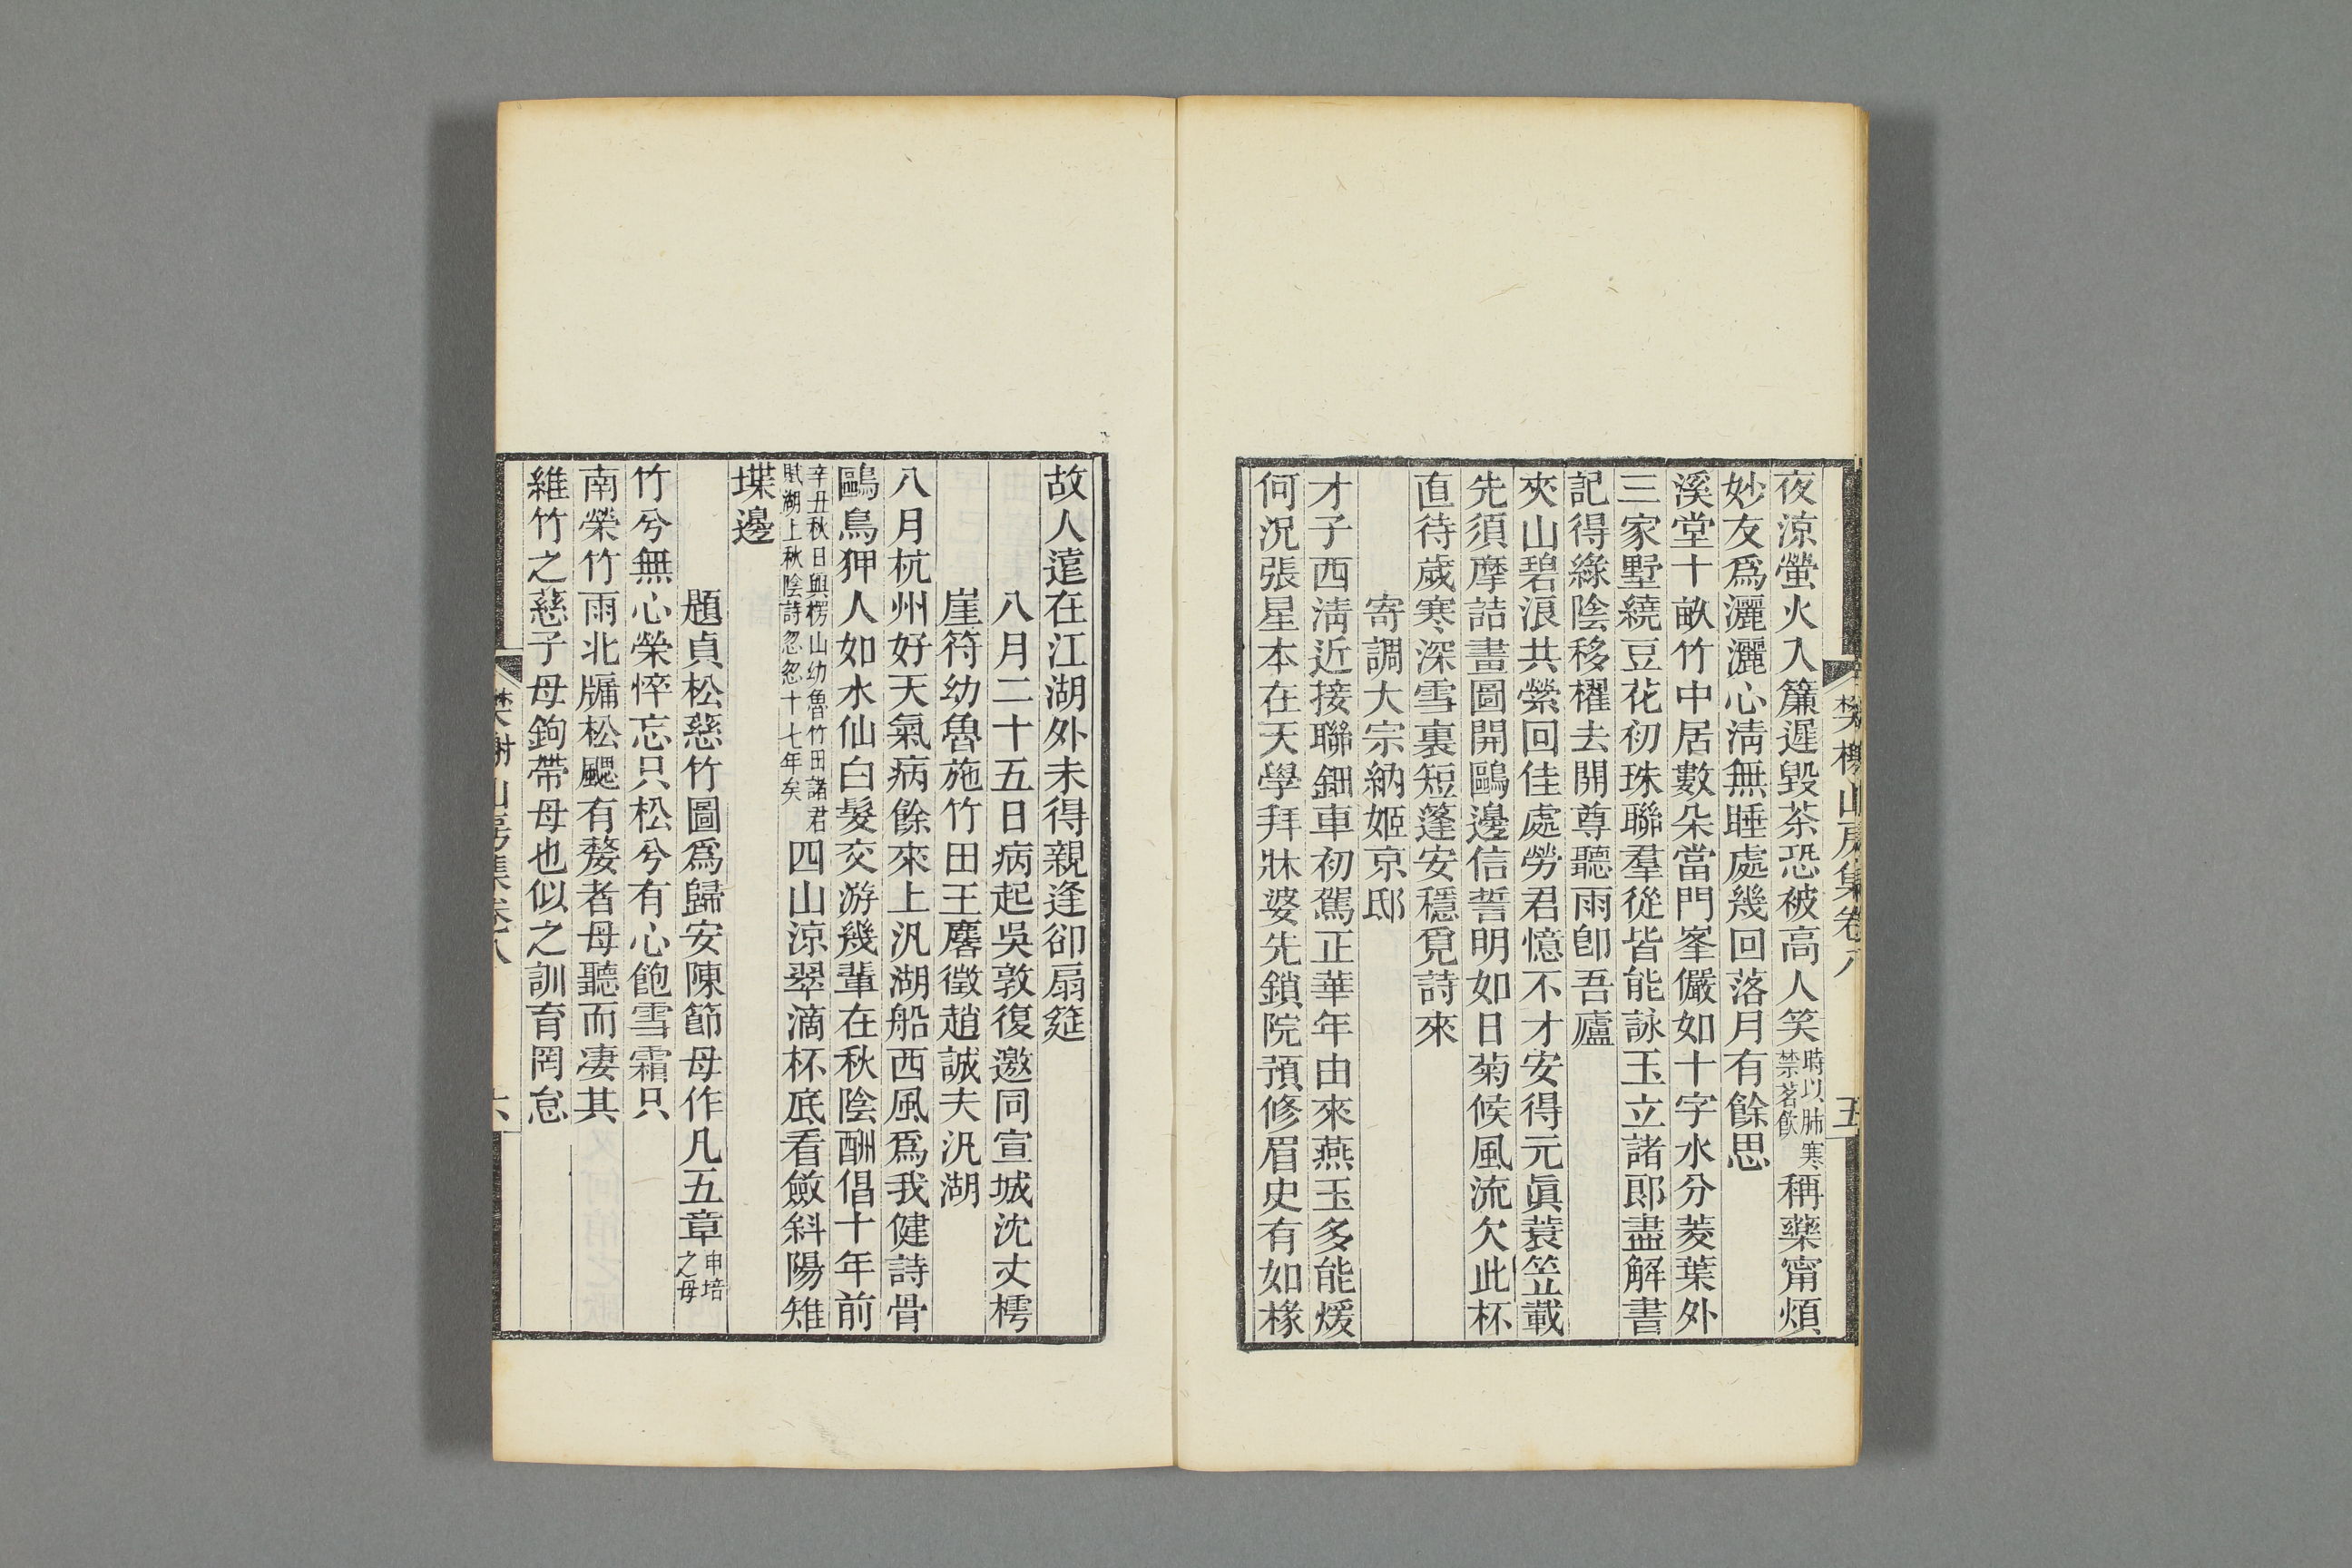 夜涼螢火入簾遲毀茶恐被高人笑時以肺寒禁茗飲稱藥甯煩
妙友爲灑灑心淸無睡處幾回落月有餘思
溪堂十畝竹中居數朵當門峯儼如十字水分菱葉外
三家墅繞豆花初珠聯羣從皆能詠玉立諸郞盡解書
記得綠陰移櫂去開尊聽雨卽吾廬
夾山碧浪共縈回佳處勞君憶不才安得元眞蓑笠載
先須摩詰畫圖開鷗邊信誓明如日菊候風流欠此杯
直待歲寒深雪裏短篷安穩覓詩來
寄調大宗納姬京邸
才子西淸近接聯鈿車初駕正華年由來燕玉多能煖
何況張星本在天學拜牀婆先鎖院預修眉史有如椽
樊榭山房集卷八
五
故人遠在江湖外未得親逢卻扇筵
八月二十五日病起吳敦復邀同宣城沈丈樗
崖符幼魯施竹田王麐徵趙誠夫汎湖
八月杭州好天氣病餘來上汎湖船西風爲我健詩骨
鷗鳥狎人如水仙白髮交游幾輩在秋陰酬倡十年前
辛丑秋日與楞山幼魯竹田諸君賦湖上秋陰詩忽忽十七年矣四山涼翠滴杯底看斂斜陽雉
堞邊
題貞松慈竹圖爲歸安陳節母作凡五章申培之母
竹兮無心榮悴忘只松兮有心飽雪霜只
南榮竹雨北牖松颸有嫠者母聽而凄其
維竹之慈子母鉤帶母也似之訓育罔怠
樊榭山房集卷八
六